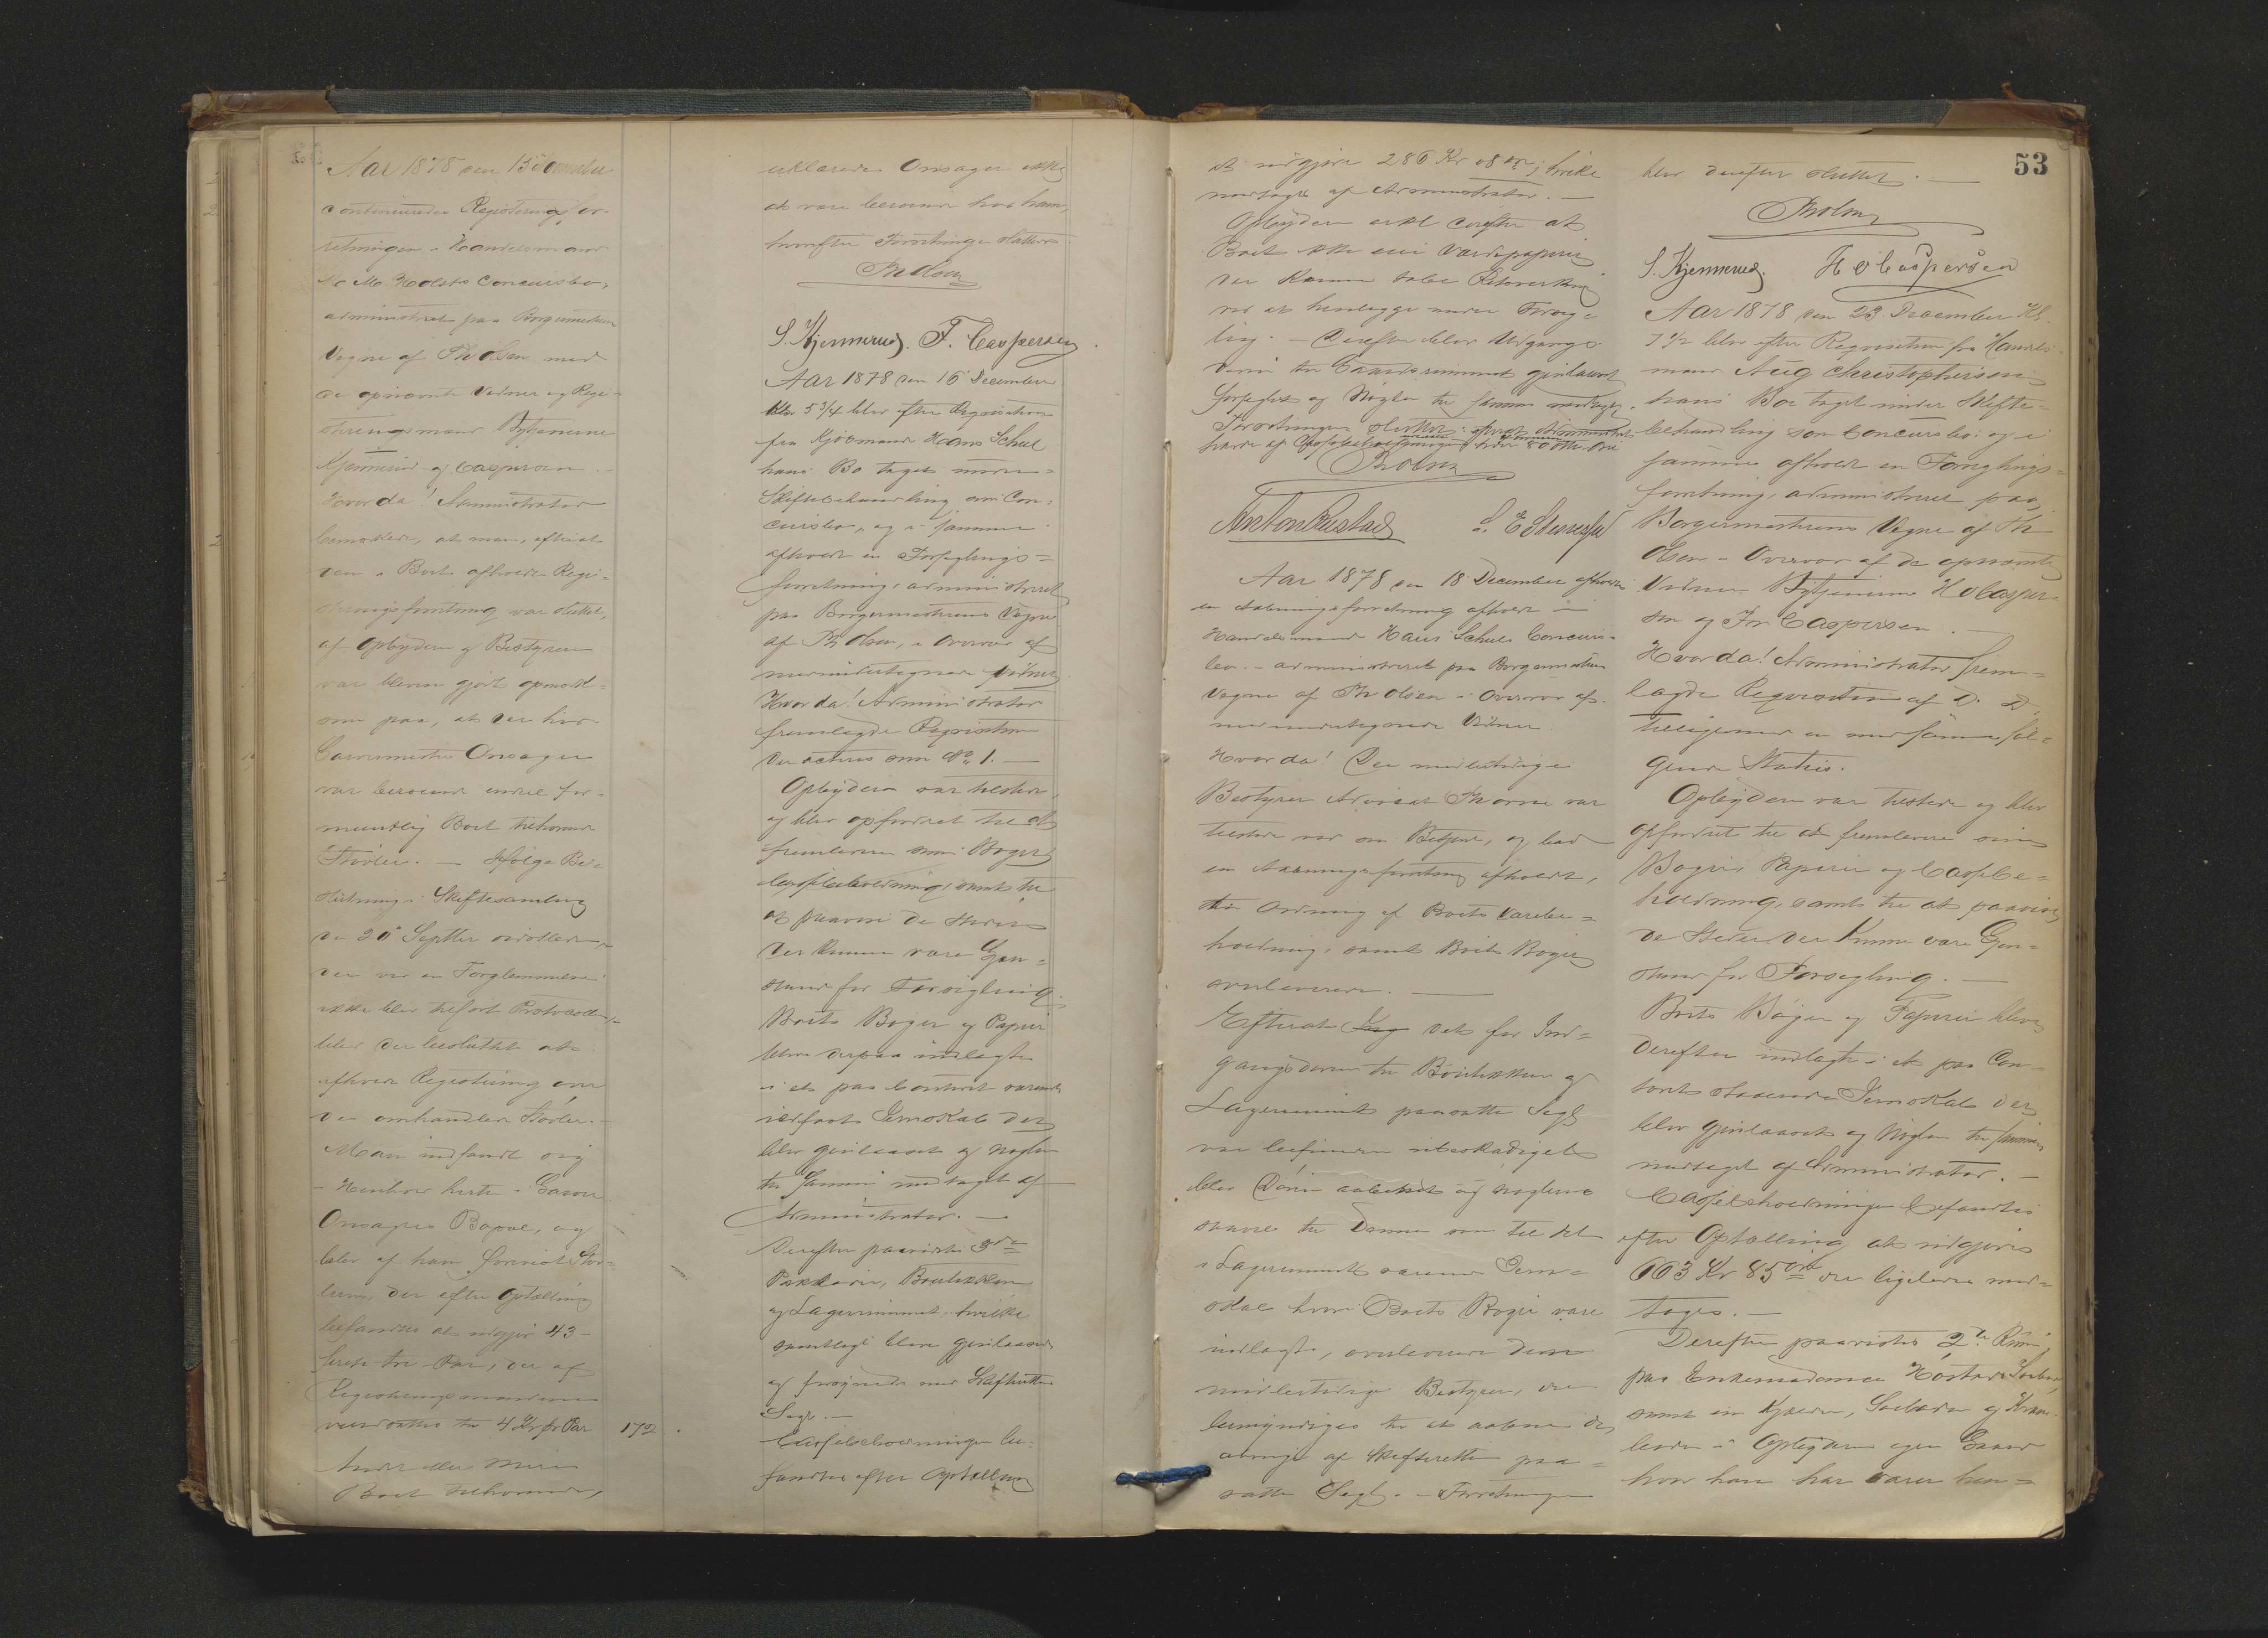 Aar 1878 den 13 December
continueredes Registeringsfor-
retningen i Handelsmand
M. Holsts Concursbo,
administreret paa Borgermesterens
Vegne af Th Olsen med
de opnævnte Vidner og Regi-
streringsmænd Bytjenerne
Kjennerud og Caspersen.
Hvorda! Administrator
bemærkede, at man, efterat
den i Boet afholdte Regi-
streringsforretning var sluttet,
af Opbyderen og Bestyreren
var bleven gjort opmærk-
som paa, at der hos
Garvermester Onsager
var beroende endel for-
mentlig Boet tilhørende
Støvler. — Ifølge Be-
slutning i Skiftesamling
de 20 Septber
der ved en Forglemmelse
ikke blev tilført Protocollen,
blev der besluttet at
afholde Registering over
de omhandlede Støvler. —
Man indfandt sig
i Henhold hertil i Garver
Onsagers Bopæl, og
blev af ham forevist Støv-
lerne, der efter Optælling
befandtes at udgjøre 43 -
fireti tre - Par, der af
Registeringsmændene
værdsattes til 4 Kr pr Par 172.
Andet eller mere
Boet tilhørende,
erklærede Onsager ikke
at være beroende hos ham,
hvorefter Forretningen sluttedes
Th Olsen
S. Kjennerud. F. Caspersen.
Aar 1878 den 16 December
Kl. 5 3/4 blev efter Requisition
fra Kjøbmand Hans Schee
hans Bo taget under
Skiftebehandling som Con-
cursbo, og i samme
afholdt en Forseglings-
forretning, administreret
paa Borgermesterens Vegne
af Th Olsen, i Overvær af
medundertegnede Vidner
Hvorda! Administrator
fremlagde Requisition
der acteres som No 1. —
Opbyderen var tilstede,
og blev opfordret til at
fremlevere sine Bøger
Cassebeholdning, samt til
at paavise de Steder
der kunne være Gjen-
stand for Forsegling.
Boets Bøger og Papirer
bleve derpaa indlagte
i et paa Contoret værende
ildfast Jernskab der
blev gjenlaaset og Nøglen
til samme modtaget af
Administrator. —
Derefter paavistes 3de
Pakboder, Boutikken
og Lagerrummet, hvilke
samtlige bleve gjenlaasede
og forsynede med Skifterettens
Segl. —
Cassebeholdningen be-
fandtes efter Optælling
53
at udgjøre 286 Kr 08 Øre, hvilke
modtoges af Administrator. —
Opbyderen erkl derefter at
Boet ikke eier Værdipapirer
der kunne tabe Retsvirkning
ved at henlægge under Forseg-
ling. — Derefter blev Udgangs-
døren til Gaardsrummet gjenlaaset
forseglet og Nøglen til samme modtaget.
Forretningen sluttet.
Th Olsen
Anton Rustad
Aar 1878 den 18 December afholdtes
en Aabningsforretning afholdt i
Handelsmand Hans Schees Concurs-
bo. — administreret paa Borgermesterens
Vegne af Th Olsen i Overvær af
medundertegnede Vidner
Hvorda! Den midlertidige
Bestyrer Advocat Thorne var
tilstede og bad
en Aabningsforretning afholdt,
til Ordning af Boets Varebe-
holdning, samt Boets Bøger
overleveret. —
Efterat det for Ind-
gangsdøren til Boutikken og
Lagerrummet paasatte Segl
var befunden ubeskadiget
blev Døren aabnet og Nøglerne
saavel til denne som til det
i Lagerrummet værende Jern-
skab hvori Boets Bøger vare
indlagte, overleveret den
midlertidige Bestyrer, der
bemyndiges til at aabne de
øvrige af Skifteretten paa-
satte Segl. — Forretningen
blev derefter sluttet. —
Th Olsen
S. Kjennerud. H O Caspersen
Aar 1878 den 23 December Kl.
7 1/2 blev efter Requisition fra Handels-
mand Aug Christophersen
hans Bo taget under Skifte-
behandling som Concursbo og i
samme afholdt en Forseglings-
forretning, administreret paa
Borgermesterens Vegne af Th
Olsen - Overvær af de opnævnte
Vidner Bytjenerne H O Casper-
sen og Fr Caspersen. —
Hvorda! Administrator frem-
lagde Requisition af D. D.
tilligemed en med samme føl-
gende Status.
Opbyderen var tilstede og blev
opfordret til at fremlevere sine
Bøger, Papirer og Cassebe-
holdning, samt til at paavise
de Steder, der kunne være Gjen-
stand for Forsegling. —
Boets Bøger og Papirer bleve
derefter indlagte i et paa Con-
toret staaende Jernskab der
blev gjenlaaset og Nøglen til samme
modtaget af Administrator. —
Cassebeholdningen befandtes
efter Optælling at udgjøre
663 Kr 85 Øre der ligeledes mod-
toges. —
Derefter paavistes 2de Rum
paa Enkemadame
samt en Kjælder, Søebod og Kram-
bod i Opbyderens egen Gaard
hvor han har været han-